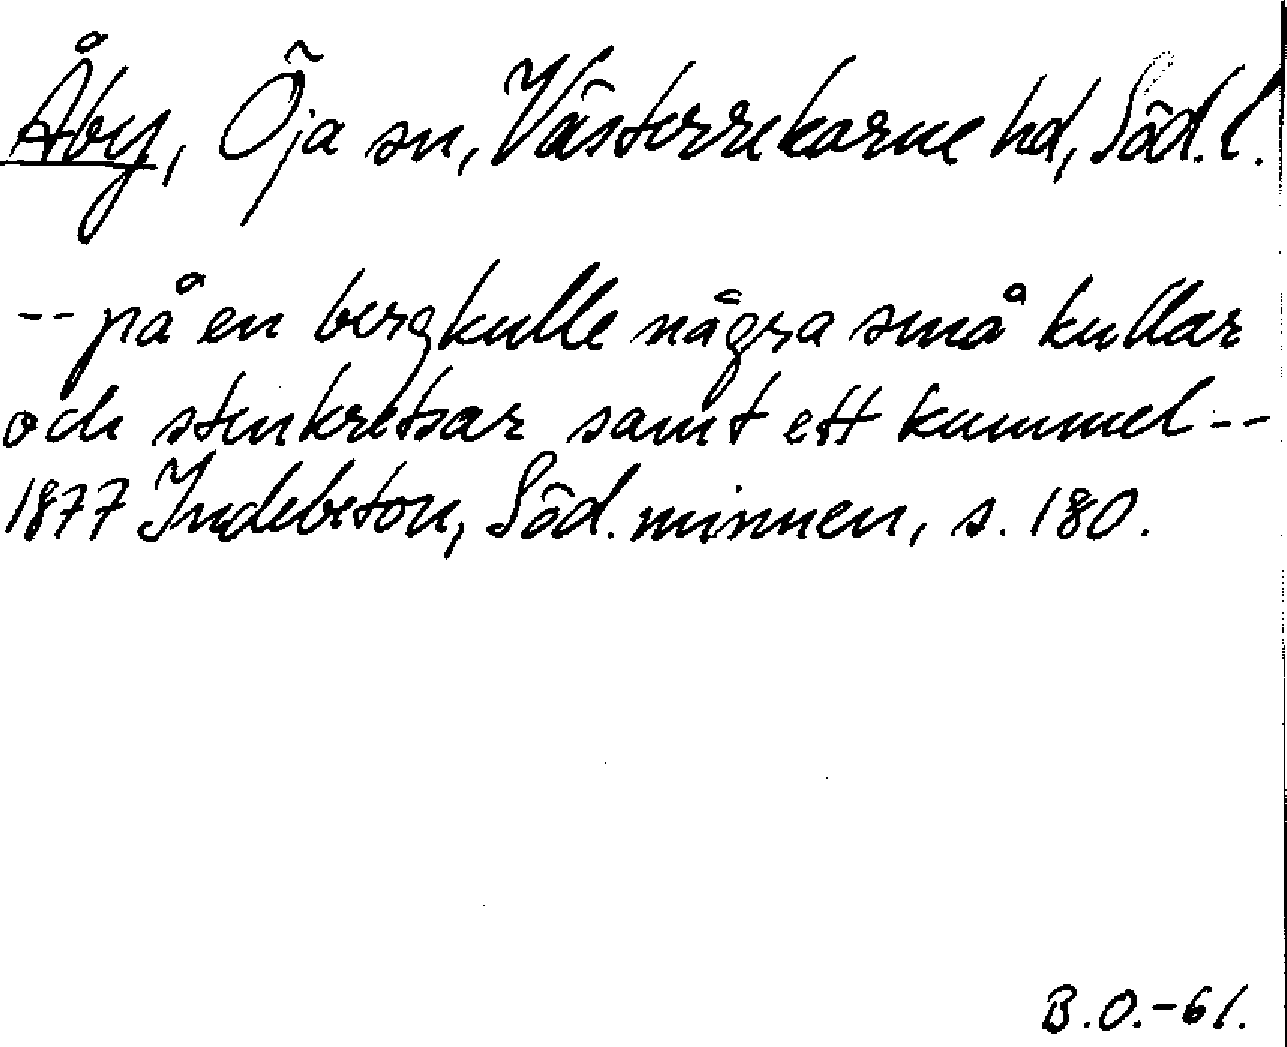 Åby, Öja sn, Västerrekarne hd, Söd. l.
-- på en bergkulle några små kullar
och stenkretsar samt ett kummel --
1877 Indebetou, Söd. minnen, s. 180.
B.O.-61.